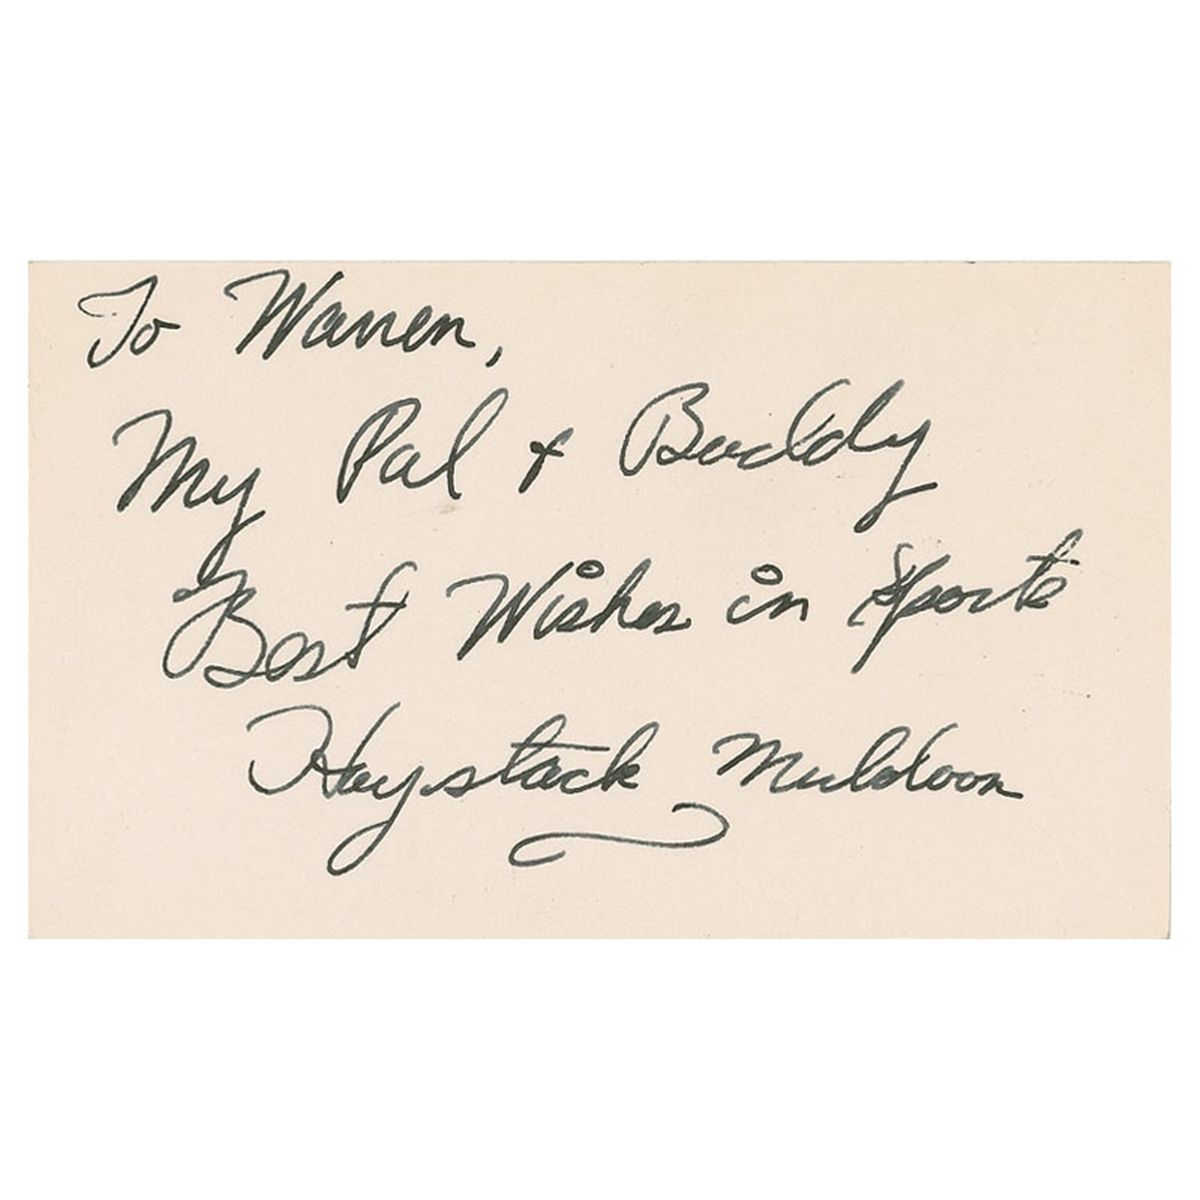 To Warren,
My Pal + Buddy
Best Wishes in Sports
Haystack Muldoon